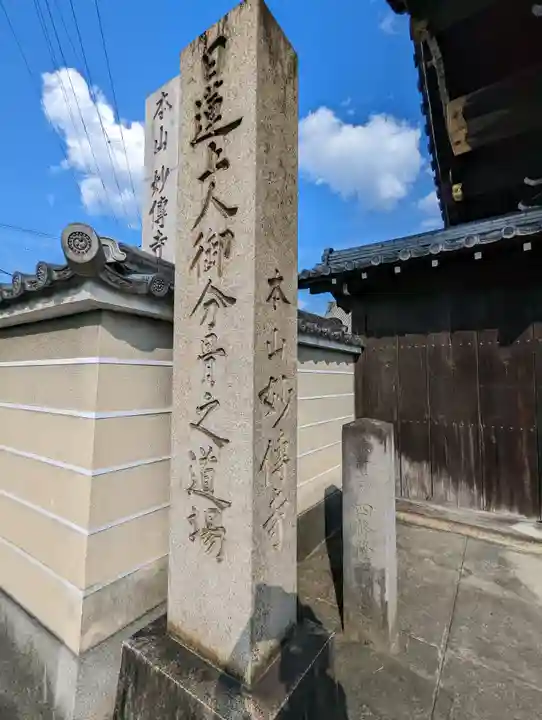 日蓮上人御分骨之道場
本山妙傳寺
本山妙傳寺